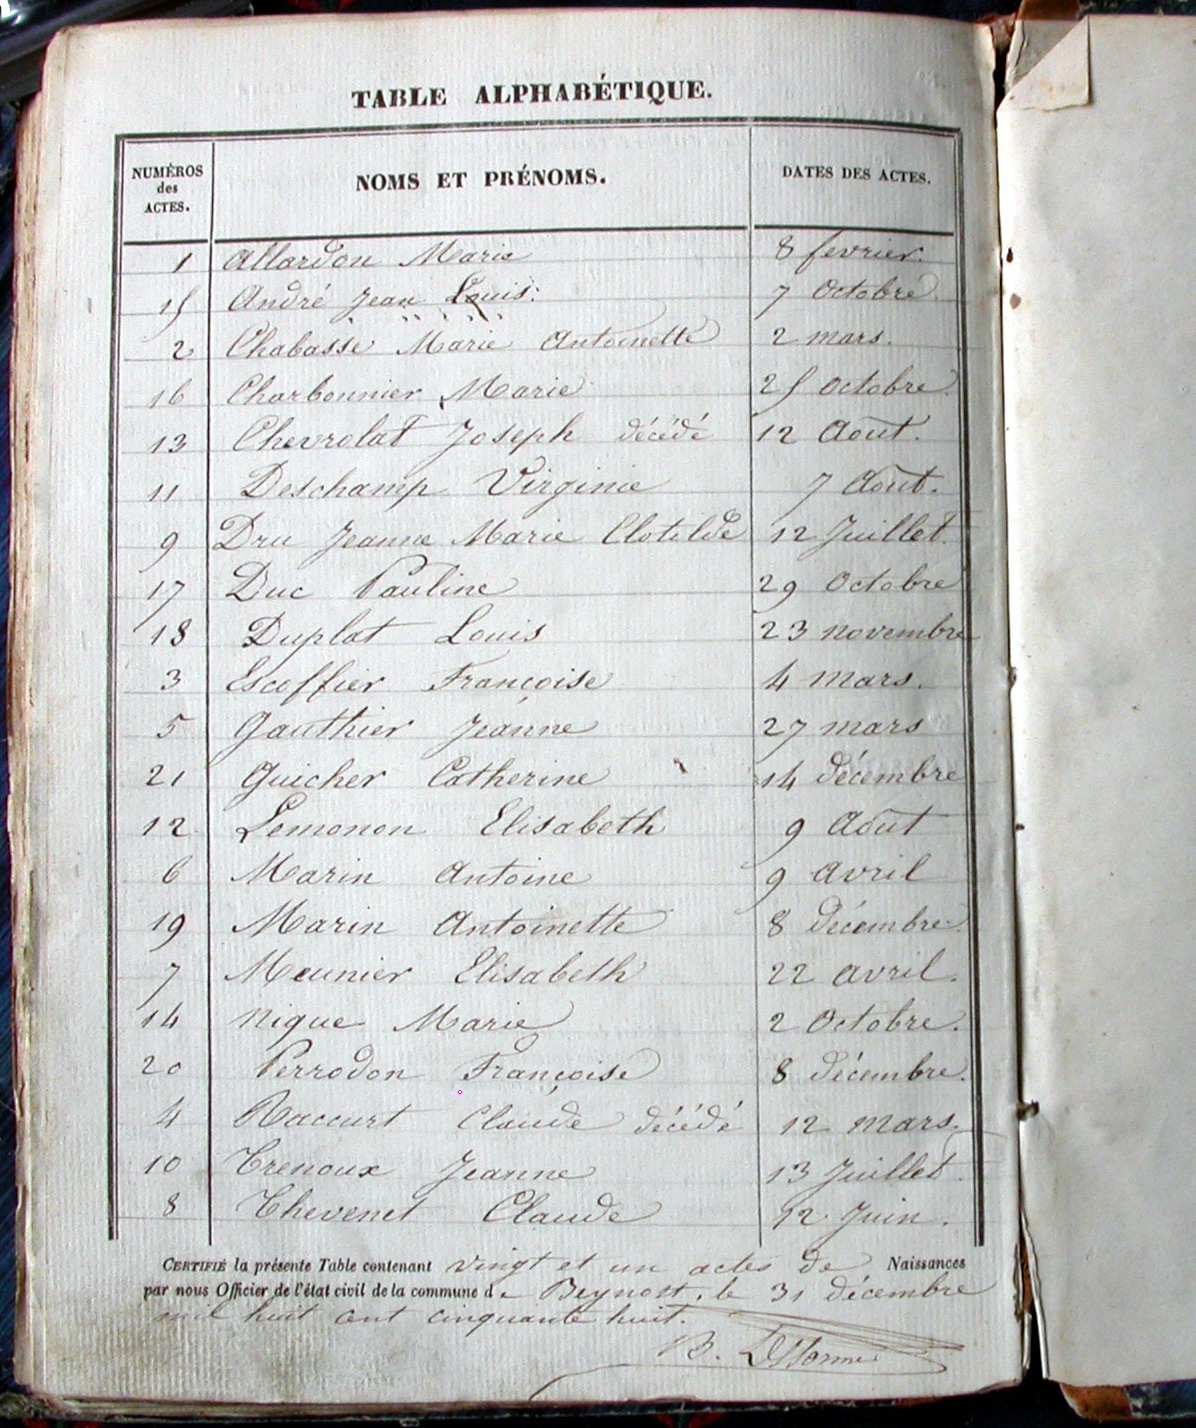 TABLE ALPHABÉTIQUE.
NUMÉROS des ACTES. NOMS ET PRÉNOMS. DATES DES ACTES.
1 Allardon Marie 8 fevrier.
15 André Jean Louis. 7 Octobre.
2 Chabasse Marie Antoinette 2 mars.
16 Charbonnier Marie 25 Octobre.
13 Chevrolat Joseph décédé 12 Aout.
11 Deschamp Virginie 7 Aout.
9 Dru Jeanne Marie Clotilde 12 Juillet.
17 Duc Pauline 29 Octobre
18 Duplat Louis 23 novembre
3 Escoffier Françoise 4 mars.
5 Gauthier Jeanne 27 mars
21 Guicher Catherine 14 décembre
12 Lemonon Elisabeth 9 Aout
6 Marin Antoine 9 avril
19 Marin Antoinette 8 Décembre.
7 Meunier Elisabeth 22 avril.
14 Nique Marie 2 Octobre.
20 Perrodon Françoise 8 décembre.
4 Raccurt Claude décédé 12 mars.
10 Trenoux Jeanne 13 Juillet.
8 Thevenet Claude 12 Juin.
CERTIFIÉ la présente Table contenant vingt et un actes de Naissances
par nous Officier de l'état civil de la commune de Beynost, le 31 décembre
mil huit cent cinquante huit.
B.